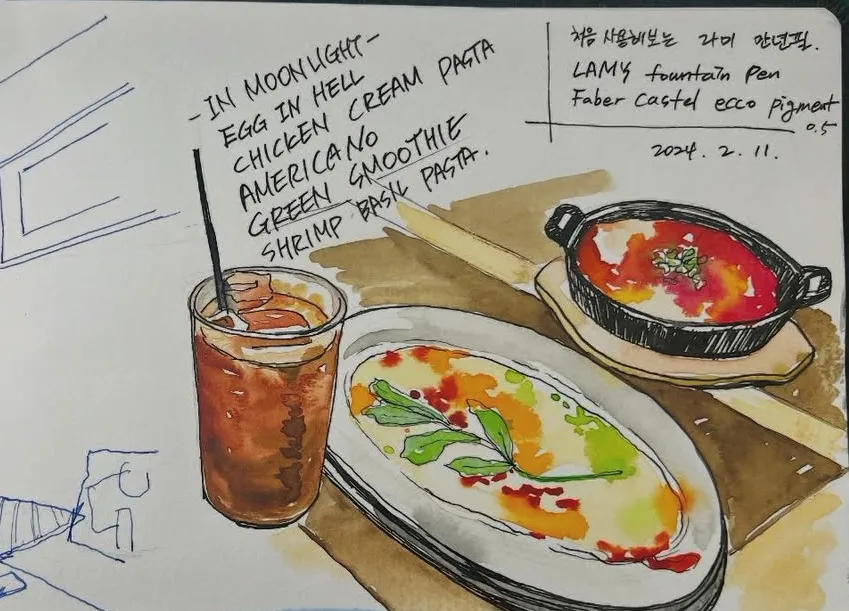 - IN MOONLIGHT -
EGG IN HELL
CHICKEN CREAM PASTA
AMERICANO
GREEN SMOOTHIE
SHRIMP BASIL PASTA.
처음 사용해보는 라미 만년필.
LAMY fountain Pen
Faber Castel ecco pigment
0.5
2024. 2. 11.